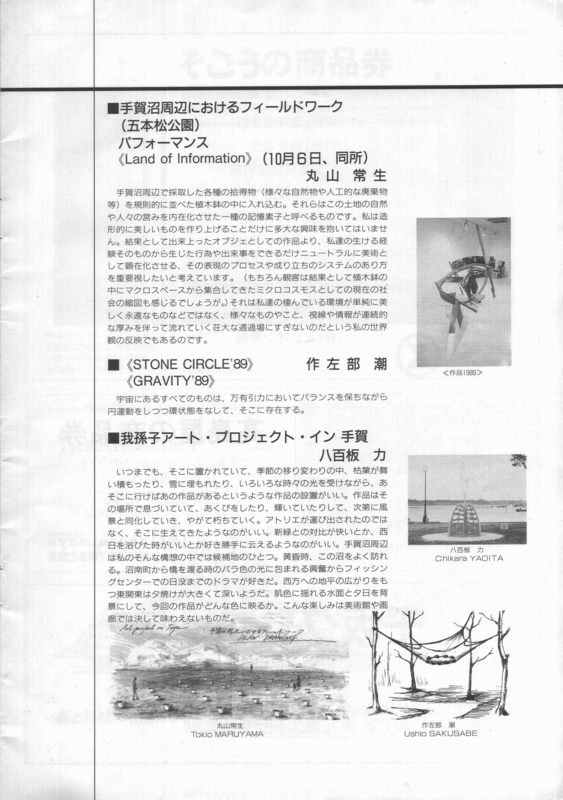 ■手賀沼周辺におけるフィールドワーク
（五本松公園）
パフォーマンス
《Land of Information》（10月6日、同所）
丸山 常生
手賀沼周辺で採取した各種の拾得物（様々な自然物や人工的な廃棄物
等）を規則的に並べた植木鉢の中に入れ込む。それらはこの土地の自然
や人々の営みを内在化させた一種の記憶素子と呼べるものです。私は造
形的に美しいものを作り上げることだけに多大な興味を抱いてはいませ
ん。結果として出来上ったオブジェとしての作品より、私達の生ける経
験そのものから生じた行為や出来事をできるだけニュートラルに美術と
して顕在化させる、その表現のプロセスや成り立ちのシステムのあり方
を重要視したいと考えています。（もちろん観客は結果として植木鉢の
中にマクロスペースから集合してきたミクロコスモスとしての現在の社
会の縮図も感じるでしょうが。）それは私達の棲んでいる環境が単純に美
しく永遠なものなどではなく、様々なものやこと、視線や情報が連続的
な厚みを伴って流れていく荘大な通過場にすぎないのだという私の世界
観の反映でもあるのです。
＜作品1989＞
■《STONE CIRCLE'89》 作左部 潮
《GRAVITY'89》
宇宙にあるすべてのものは、万有引力においてバランスを保ちながら
円運動をしつつ環状態をなして、そこに存在する。
■我孫子アート・プロジェクト・イン 手賀
八百板 力
いつまでも、そこに置かれていて、季節の移り変わりの中、枯葉が舞
い積もったり、雪に埋もれたり、いろいろな時々の光を受けながら、あ
そこに行けばあの作品があるというような作品の設置がいい。作品はそ
の場所で息づいていて、あくびをしたり、輝いていたりして、次第に風
景と同化していき、やがて朽ちていく。アトリエが運び出されたのでは
なく、そこに生えてきたようなのがいい。新緑との対比が快いとか、西
日を浴びた時がいいとか好き勝手に云えるようなのがいい。手賀沼周辺
は私のそんな構想の中では候補地のひとつ。黄昏時、この沼をよく訪れ
る。沼南町から橋を渡る時のバラ色の光に包まれる興奮からフィッシン
グセンターでの日没までのドラマが好きだ。西方への地平の広がりをも
つ東関東は夕焼けが大きくて深いようだ。肌色に揺れる水面と夕日を背
景にして、今回の作品がどんな色に映るか。こんな楽しみは美術館や画
廊では決して味わえないものだ。
八百板 力
Chikara YAOITA
Art project in Tega
手賀沼周辺におけるフィールドワーク
PLAN DRAWING
丸山常生
Tokio MARUYAMA
作左部 潮
Ushio SAKUSABE